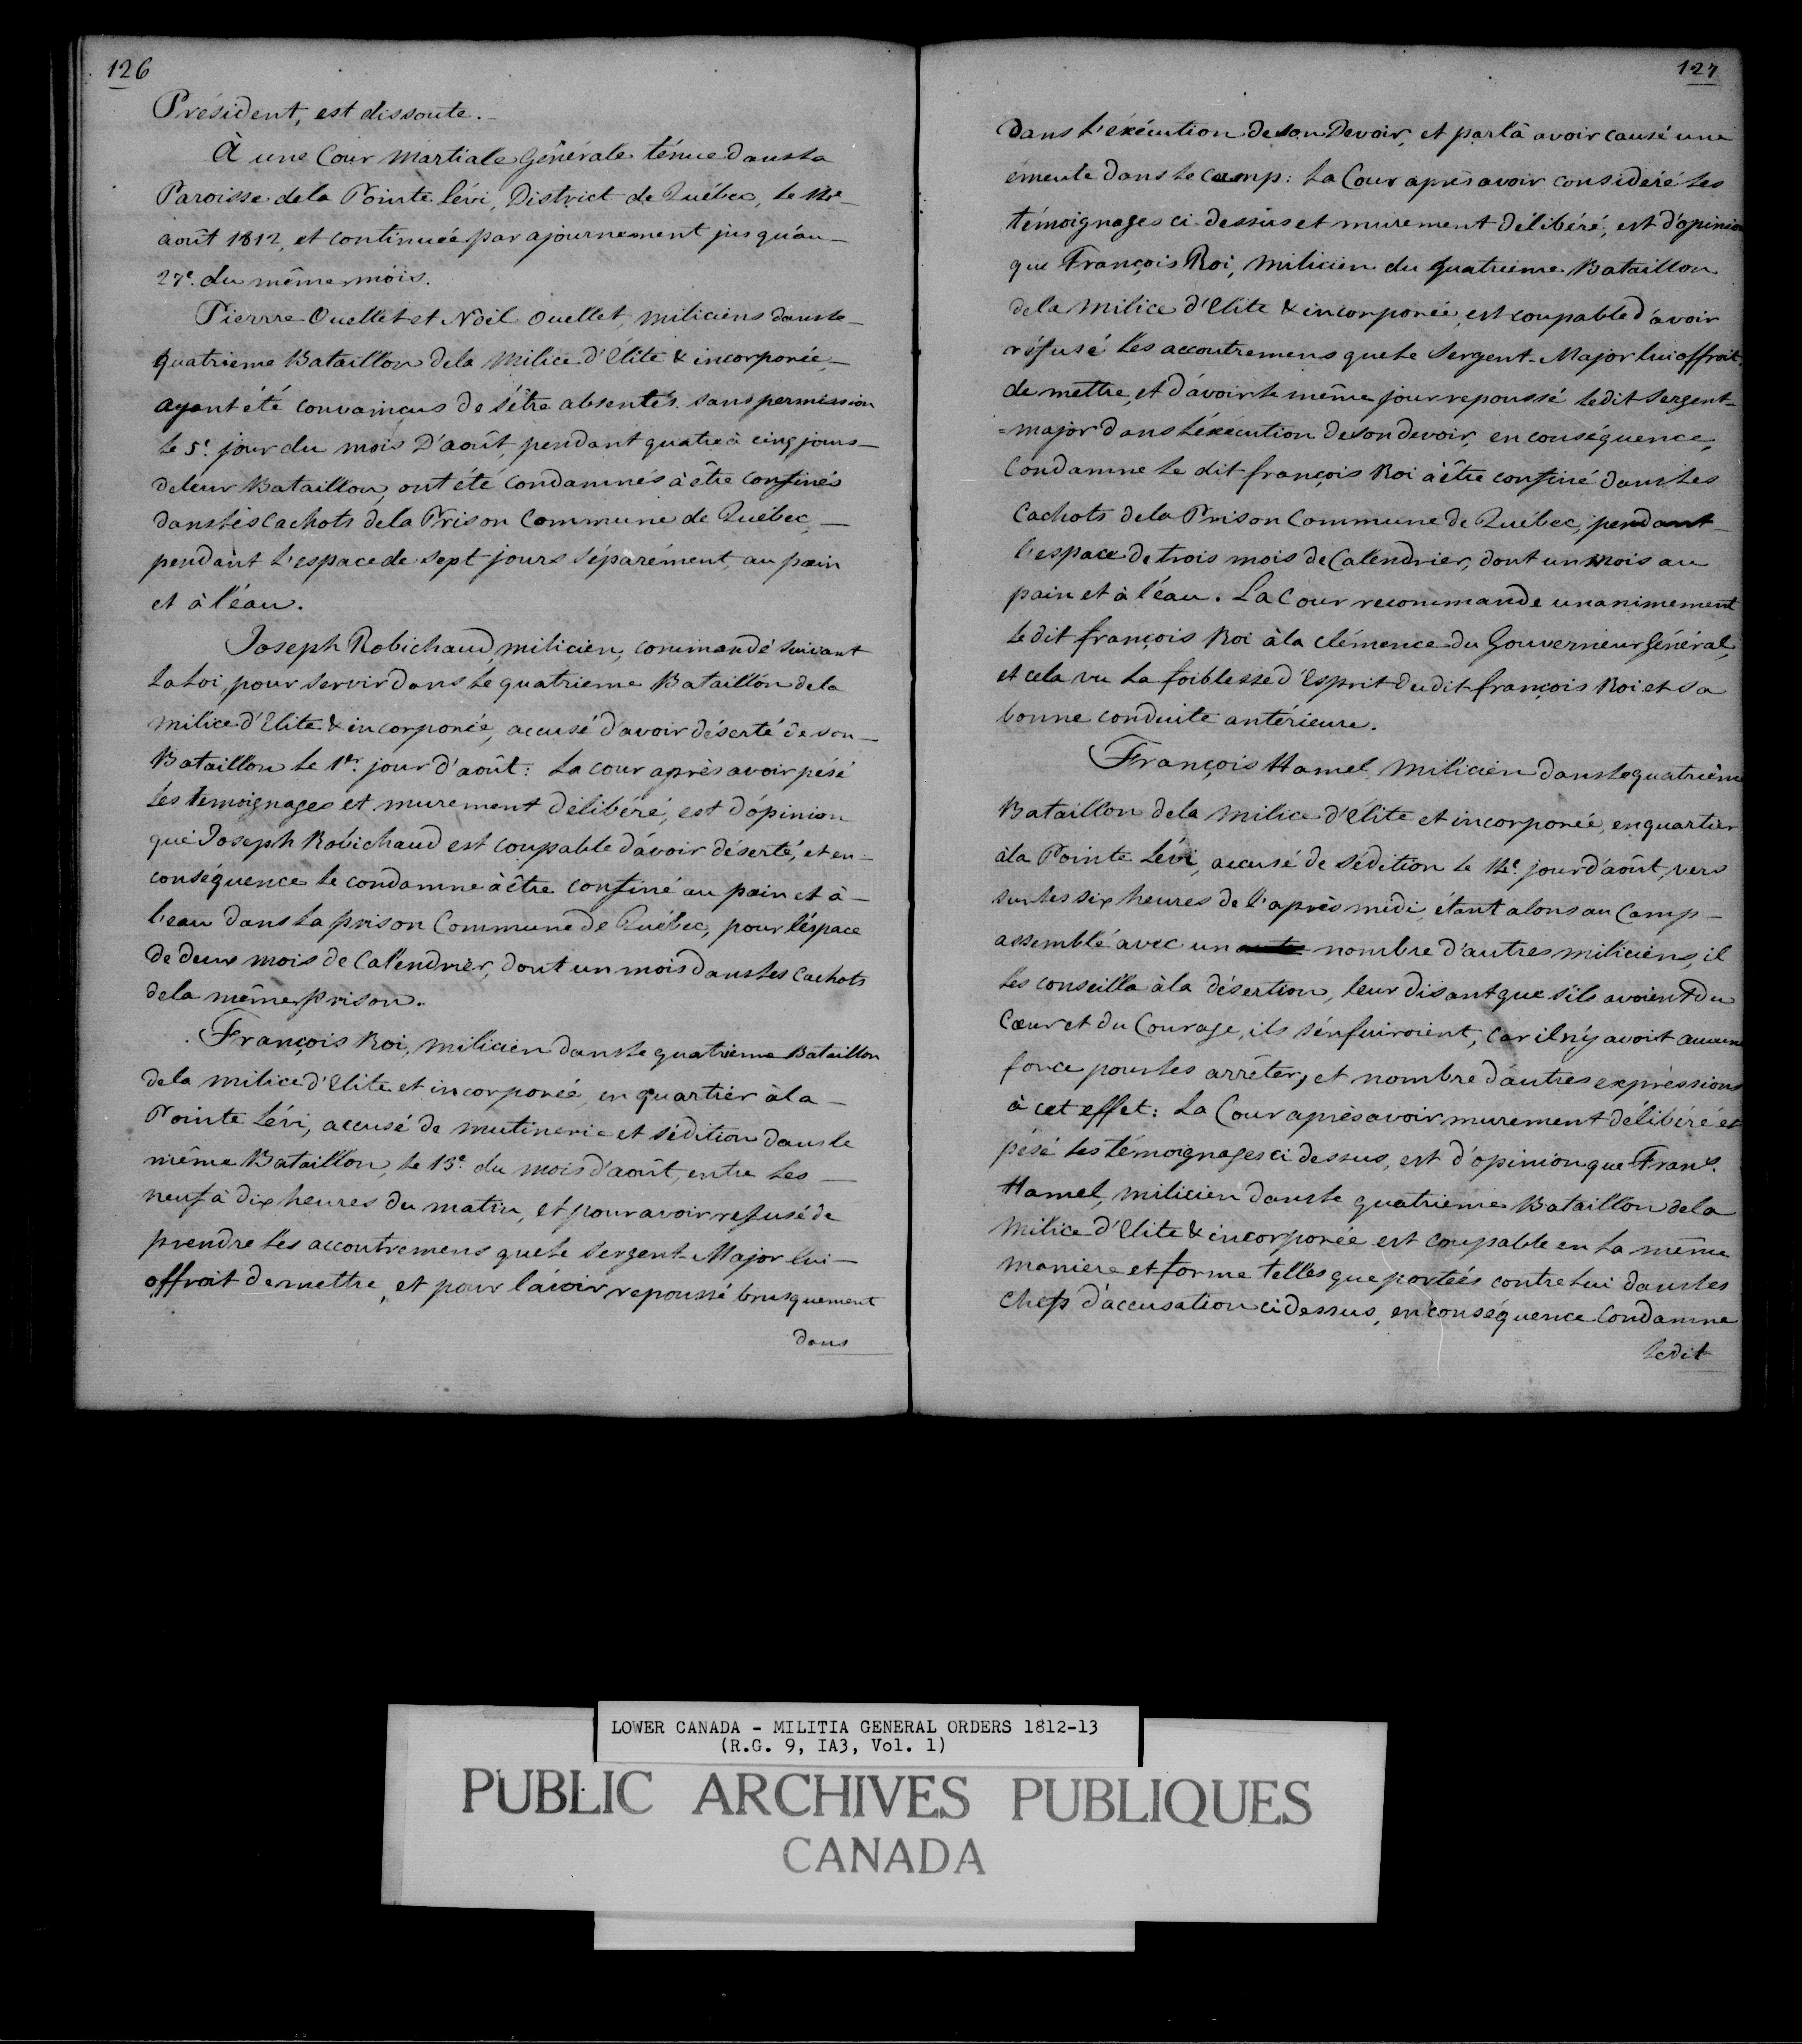 126
Président, est dissoute.
À une Cour Martiale Générale ténue dans la
Paroisse de la Pointe Lévi, District de Québec, le
août 1812, et continuée par ajournement jusqu'au
27e. du même mois.
Pierrre Ouellet et Noël Ouellet, miliciens dans le
quatrieme Bataillon de la Milice d'Élite & incorporée,
ayant été convaincus de s'être absentés sans permission
le 5e. jour du mois D'août, pendant quatre à cinq jours
de leur Bataillon, ont été condamnés à être confinés
dans les Cachots de la Prison Commune de Québec,
pendant l'espace de sept jours séparément, au pain
et à l'éau.
Joseph Robichaud, milicien, commandé suivant
la Loi, pour servir dans le quatrieme Bataillon de la
Milice d'Elite & incorporée, accusé d'avoir déserté de son
Bataillon le 1er. jour d'août: La cour après avoir pésé
les temoignages et murement délibéré, est d'ópinion
que Joseph Robichaud est coupable d'avoir déserté, et en
conséquence le condamne à être confiné au pain et à
l'eau dans la prison Commune de Québec, pour l'éspace
de deux mois de Calendrier, dont un mois dans les Cachots
de la même prison.
François Roi, milicien dans le quatrieme Bataillon
de la milice d'Elite et incorporée, en quartier à la
Pointe Lévi, accusé de mutinerie et sédition dans le
même Bataillon, le 13e. du mois d'août, entre les
neuf à dix heures du matin, et pour avoir refusé de
prendre les accoutremens que le Sergent-Major lui
offroit de mettre, et pour l'avoir repoussé brusquement
dans
127
dans l'éxécution de son Devoir, et par là avoir causé une
émeute dans le Camp: La Cour après avoir consideré les
témoignages ci-dessus et murement délibéré, est d'opinion
que François Roi, Milicien du quatrieme Bataillon
de la Milice d'Elite & incorporée, est coupable d'avoir
réfusé les accoutremens que le Sergent-Major lui offroit
de mettre, et d'avoir le même jour repoussé ledit Sergent=
=major dans l'éxécution de son devoir, en conséquence,
Condamne le dit françois Roi à être confiné dans les
Cachots de la Prison Commune de Québec, pendant
l'espace de trois mois de Calendrier, dont un mois au
pain et à l'éau. La Cour recommande unanimement
le dit françois Roi à la clémence du Gouverneur Général,
et cela vu la foiblesse d'Esprit du dit françois Roi et sa
bonne conduite antérieure.
François Hamel, Milicien dans le quatrième
Bataillon de la milice d'élite et incorporée, en quartier
à la Pointe Lévi, accusé de sédition le 12e. jour d'août, vers
sur les six heures de l'après midi, étant alors au Camp
assemblé avec un nombre d'autres miliciens, il
les conseilla à la désertion, leur disant que s'ils avoient du
Cœur et du Courage, ils s'enfuiroient, car il n'y avoit aucune
force pour les arrêter, et nombre d'autres expressions
à cet effet: La Cour après avoir murement délibéré et
pésé les témoignages ci dessus, est d'opinion que Frans.
Hamel, milicien dans le quatrieme Bataillon de la
Milice d'Elite & incorporée est coupable en la même
maniere et forme telles que portées contre lui dans les
Chefs d'accusation ci dessus, en conséquence Condamne
ledit
LOWER CANADA - MILITIA GENERAL ORDERS 1812-13
(R.G. 9, IA3, Vol. 1)
PUBLIC ARCHIVES PUBLIQUES
CANADA